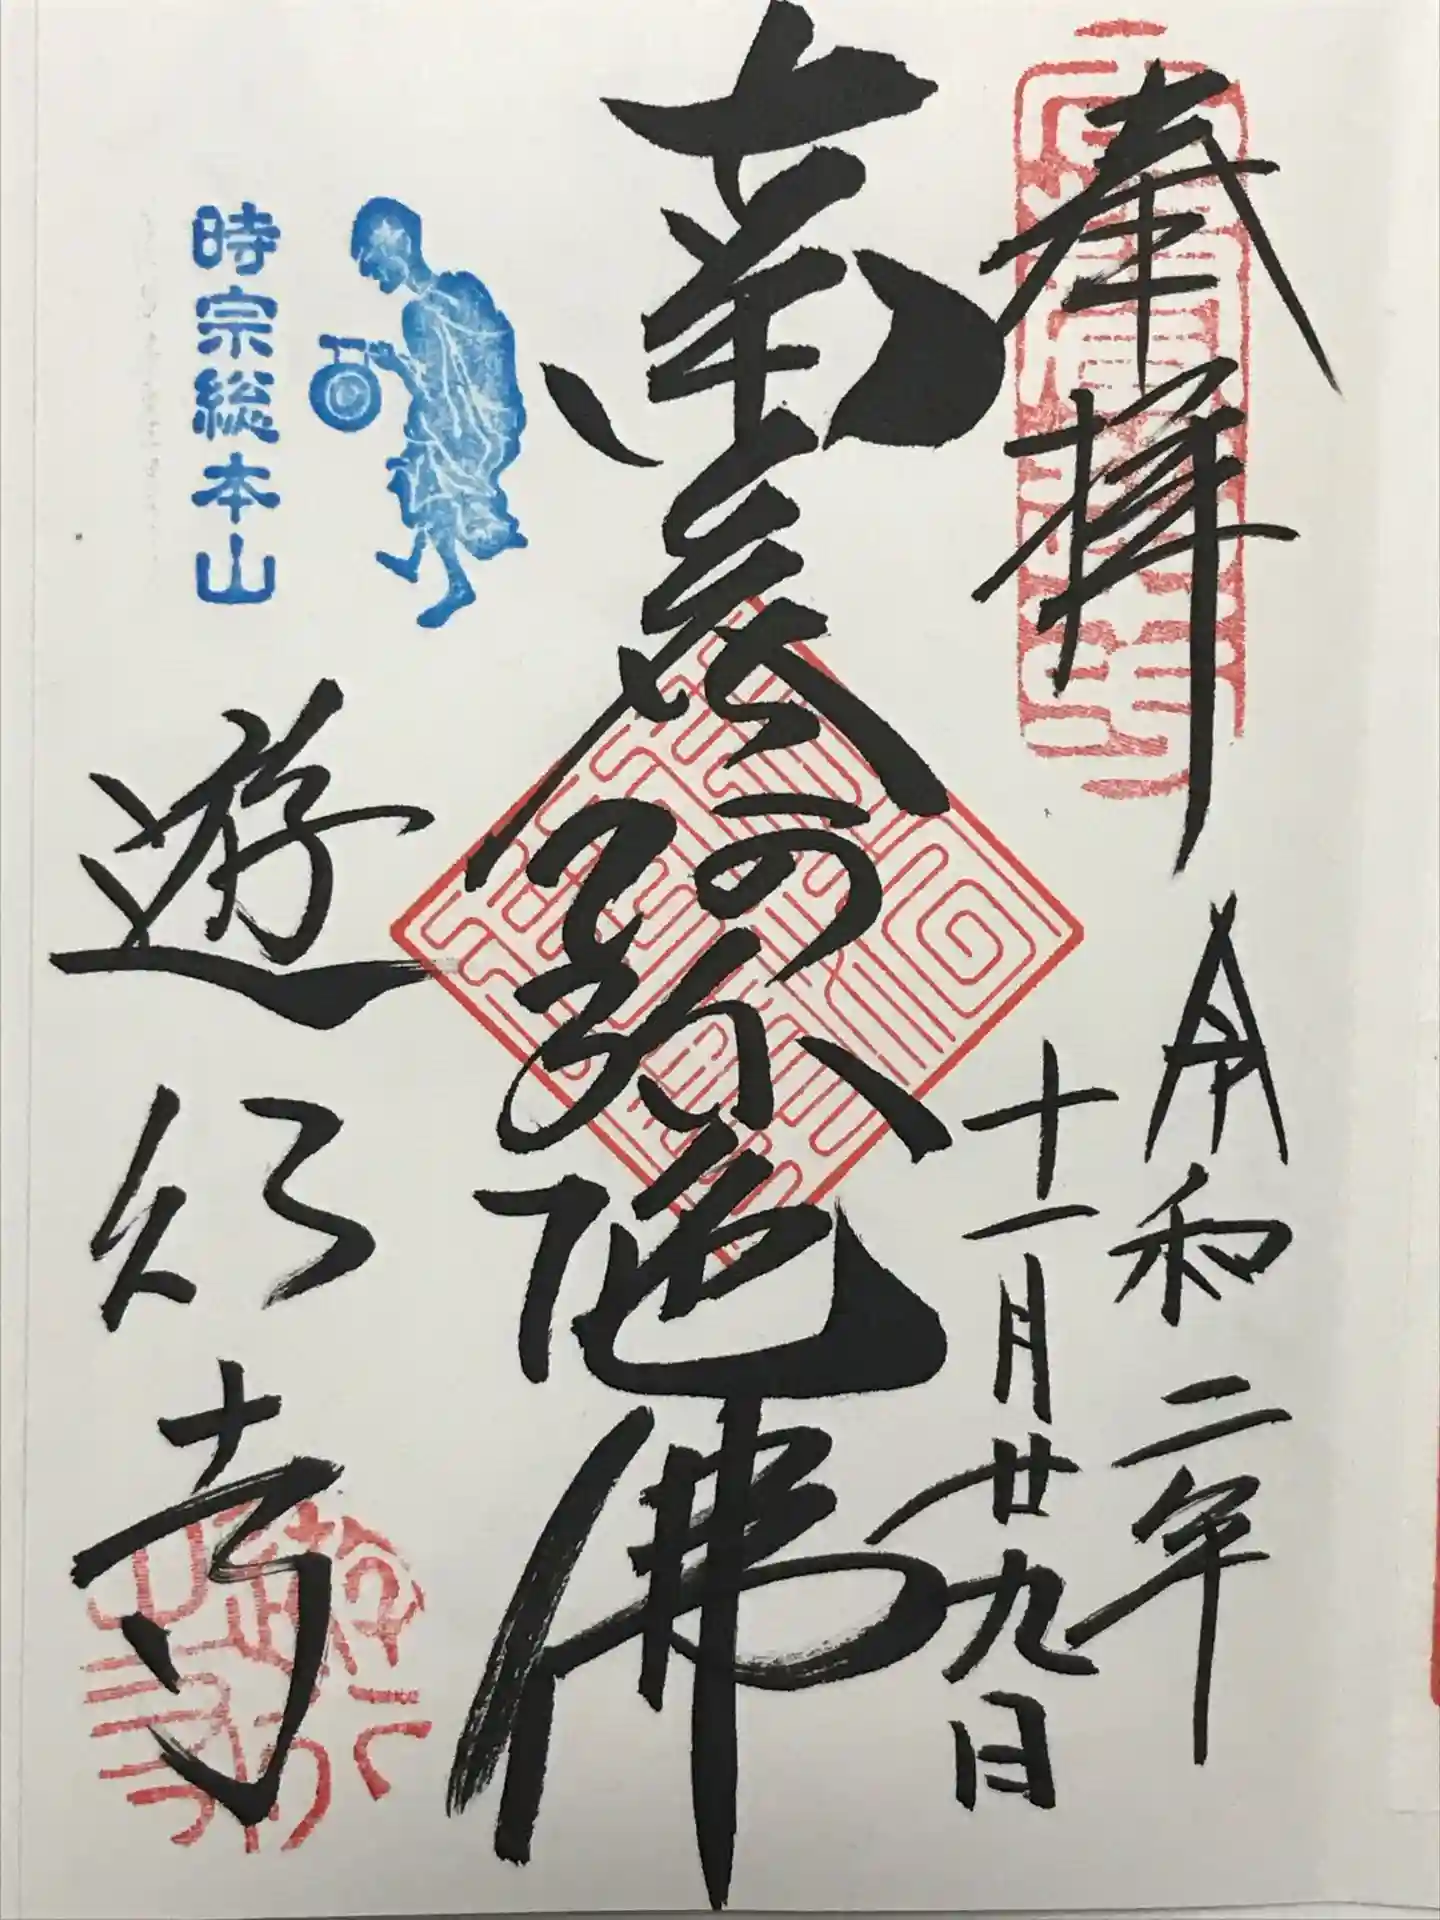 奉拝
令和二年
十一月廿九日
南無阿弥陀佛
時宗総本山
遊行寺